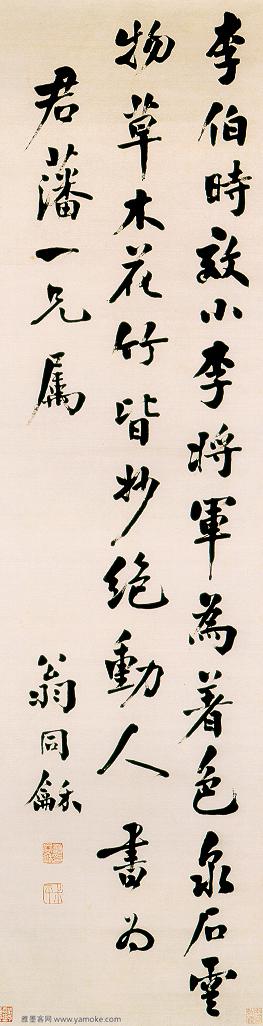 李伯時效小李將軍為著色泉石雲
物草木花竹皆妙絶動人 書為
君藩一兄屬
翁同龢
雅墨客网 www.yamoke.com